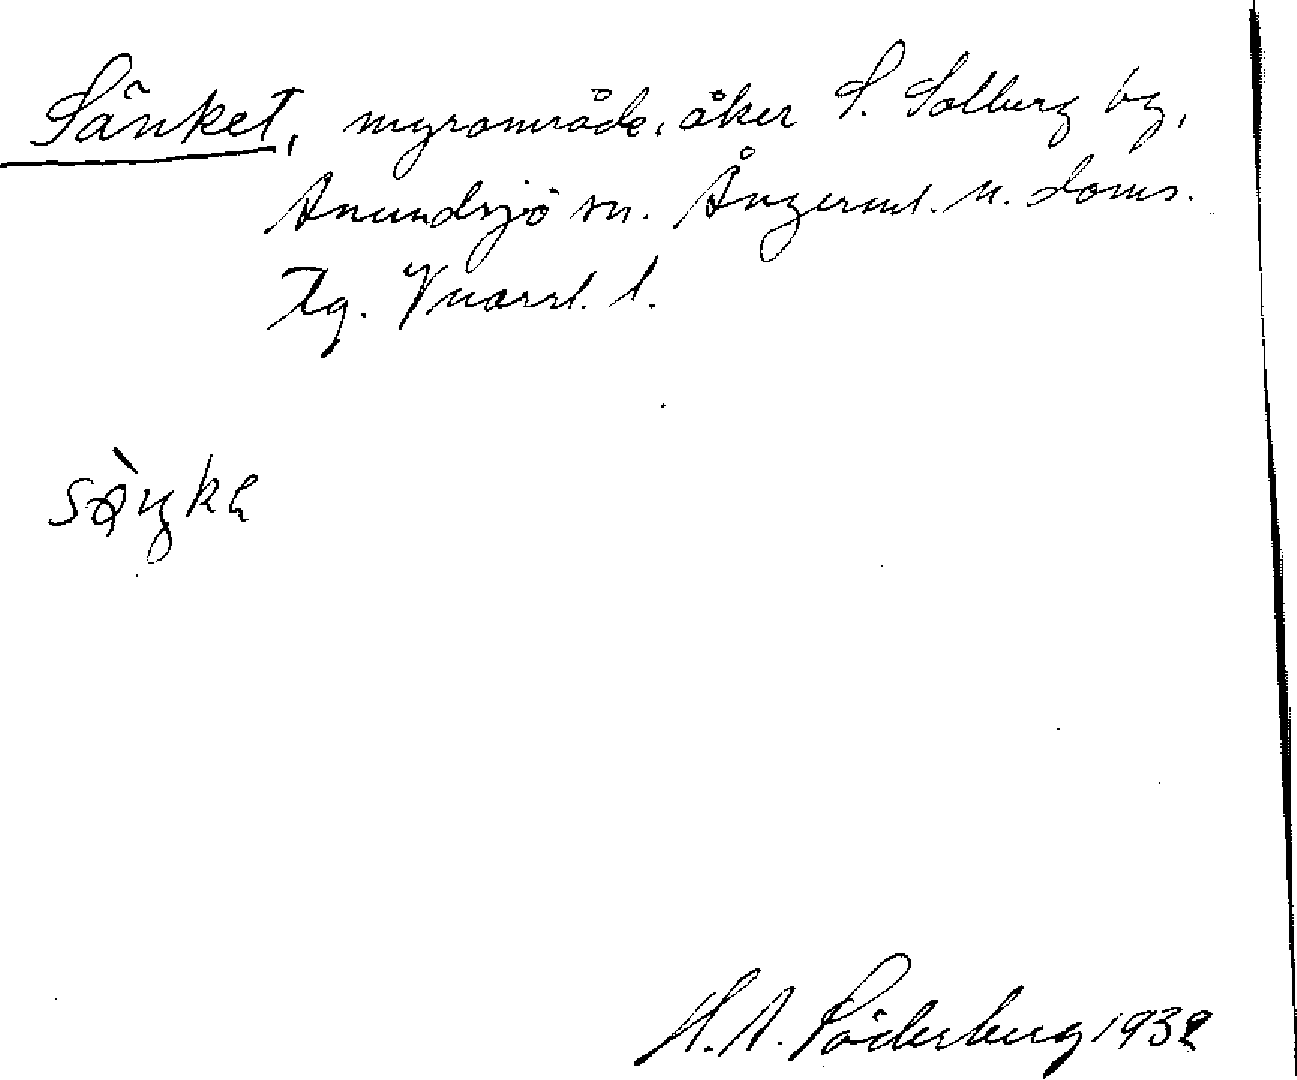 Sänket, myrområde, åker S. Solberg by,
Anundsjö sn. Ångerml. n. doms.
Tg.
sàŋka
H. A. Söderberg 1932